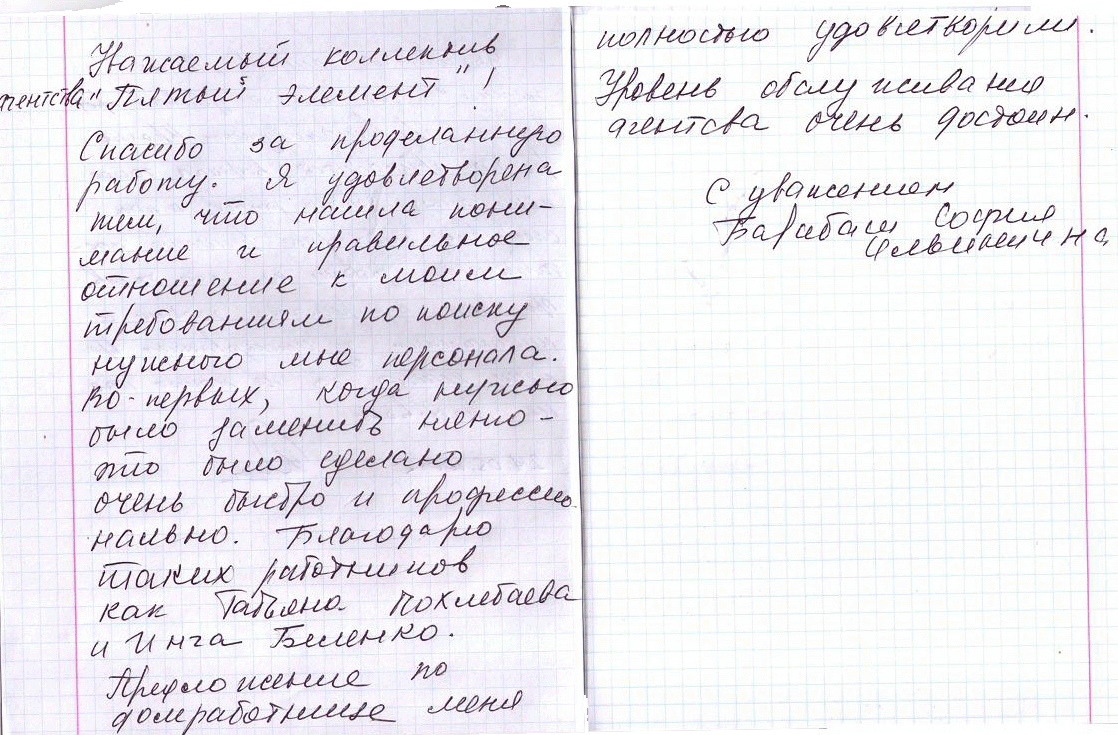 Уважаемый коллектив
агентства "Пятый элемент"!
Спасибо за проделанную
работу. Я удовлетворена
тем, что нашла пони-
мание и правильное
отношение к моим
требованиям по поиску
нужного мне персонала.
Во-первых, когда нужно
было заменить няню -
это было сделано
очень быстро и профессио-
нально. Благодарю
таких работников
как Татьяна Похлебаева
и Инга Беленко.
Предложение по
домработнице меня
полностью удовлетворили.
Уровень обслуживания
агентсва очень достоин.
С уважением
Барабаш София